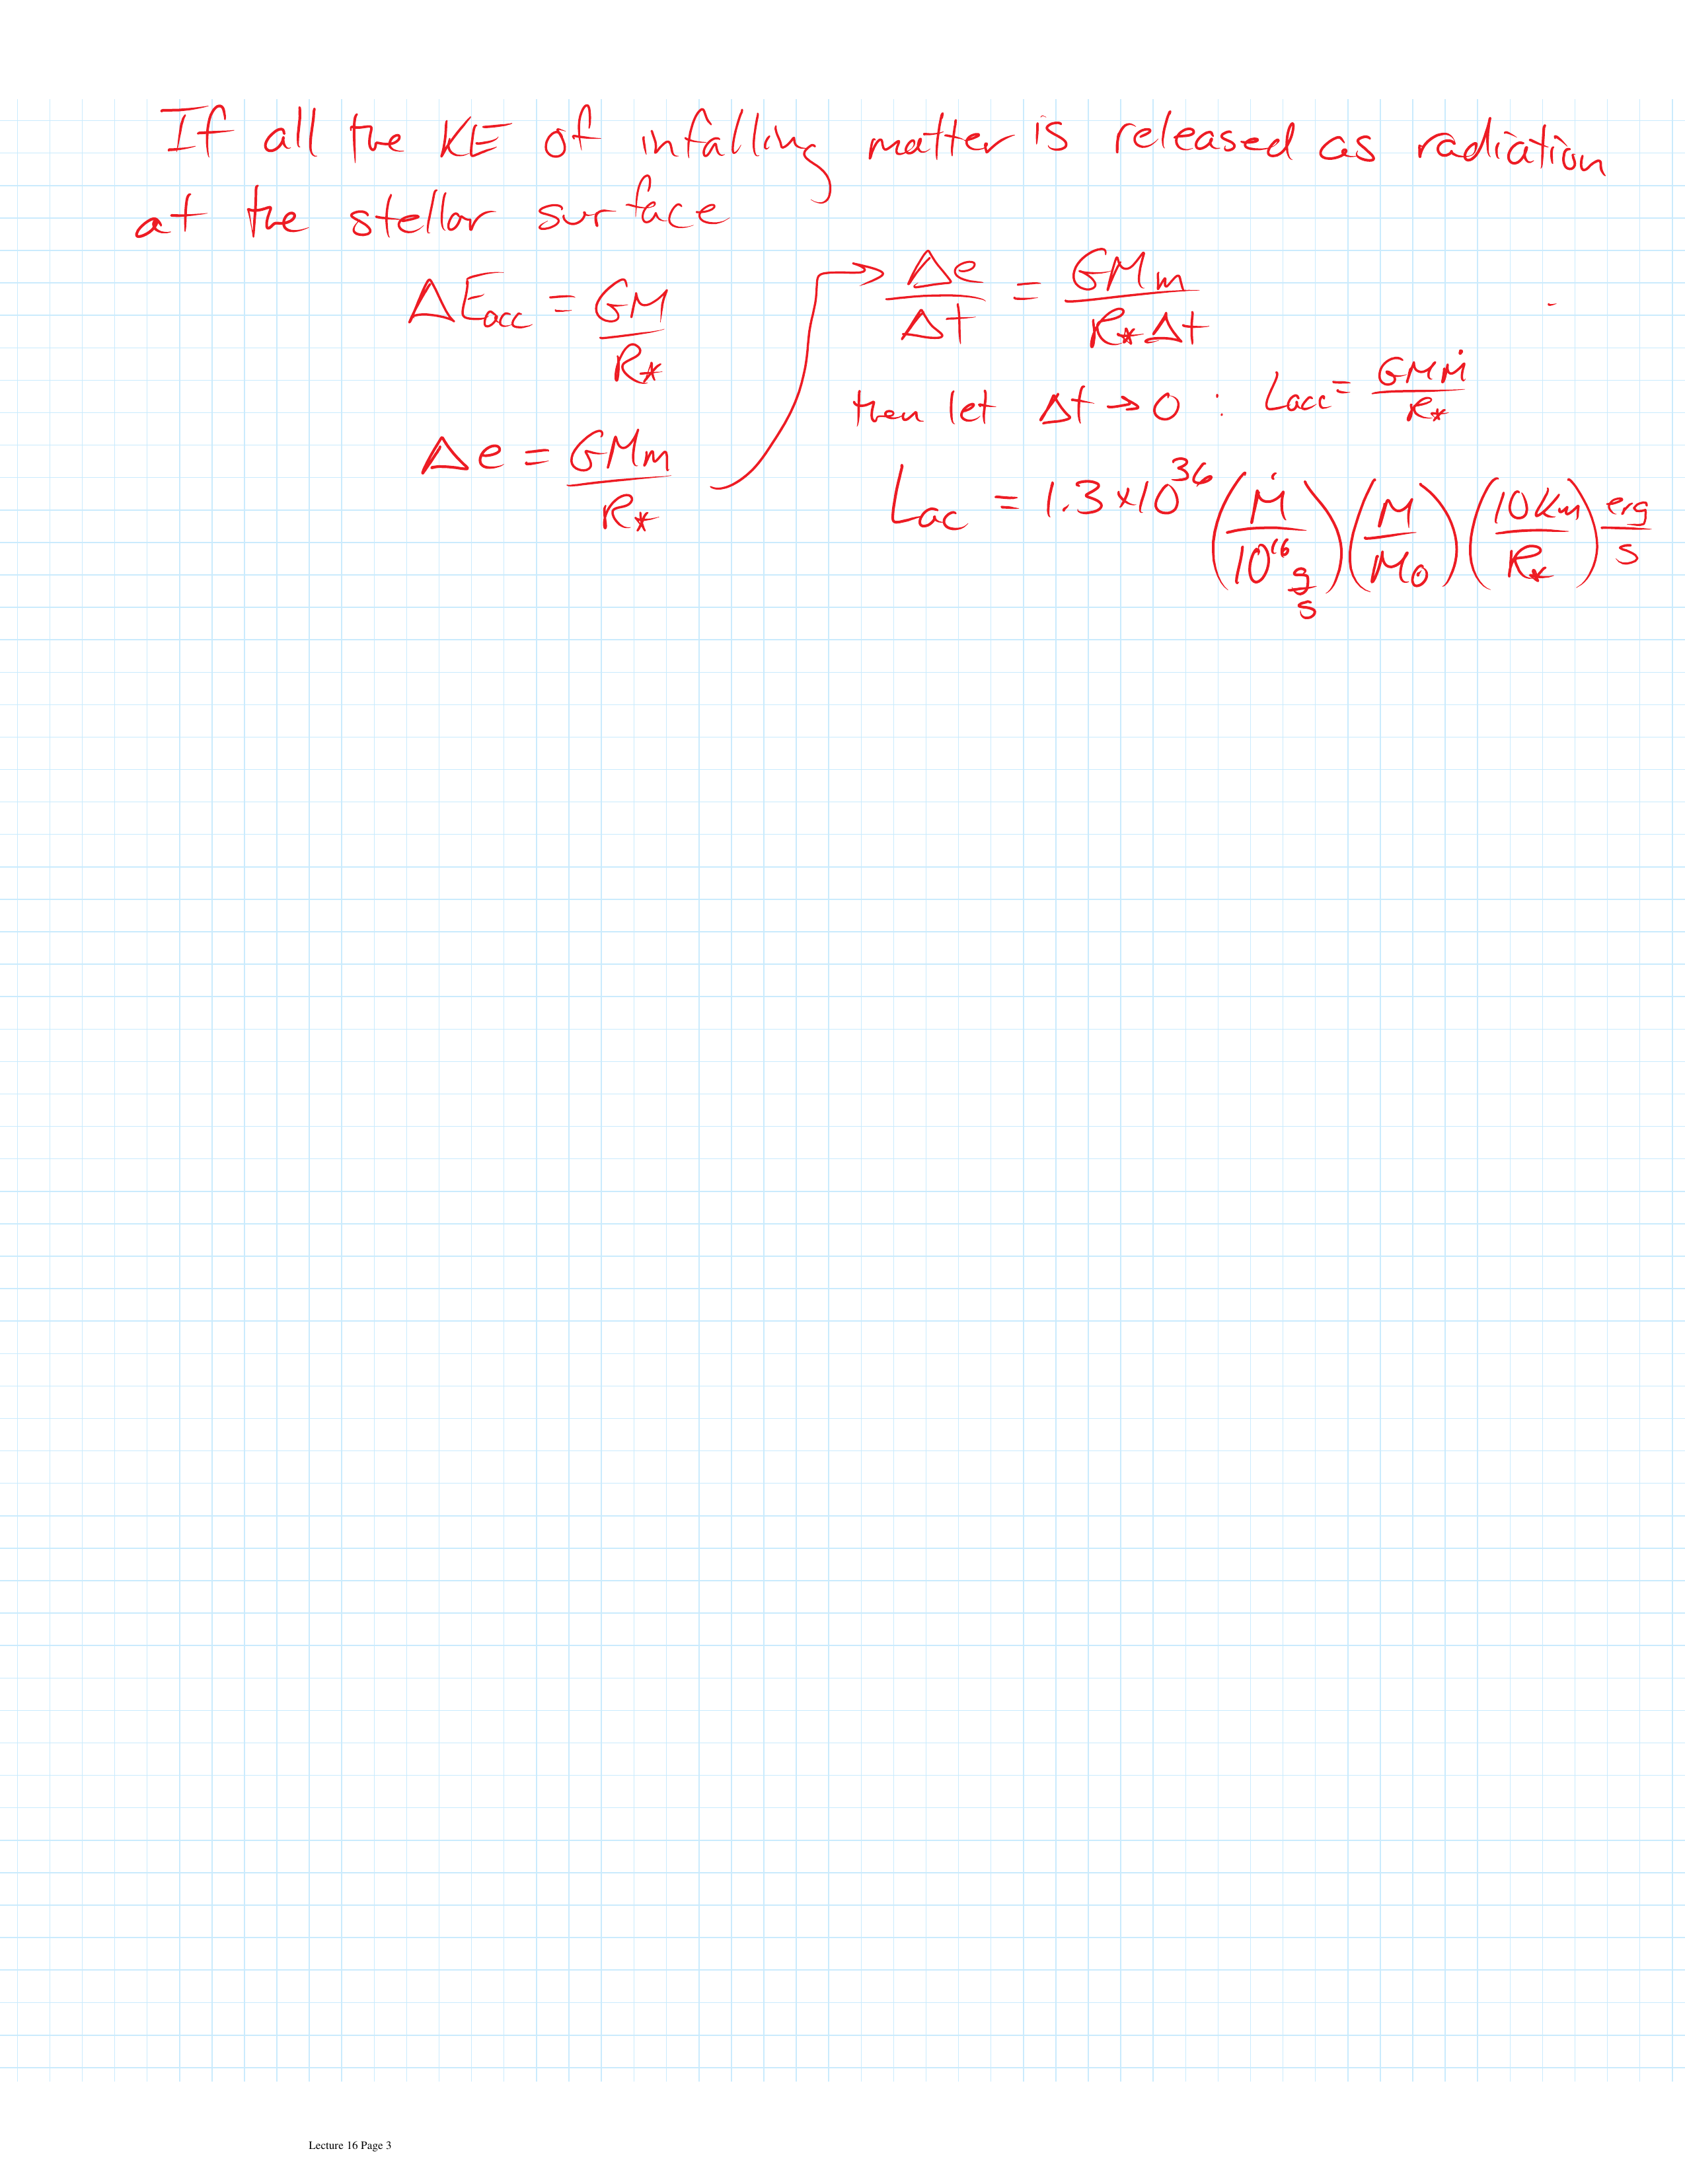 If all the KE of infalling matter is released as radiation
at the stellar surface
ΔE_acc = GM/R_*
Δe = GMm/R_*
→ Δe/Δt = GMm/(R_*Δt)
then let Δt → 0 : L_acc = GMṀ/R_*
L_ac = 1.3×10^36 (Ṁ/10^16 g/s) (M/M_⊙) (10km/R_*) erg/s
Lecture 16 Page 3